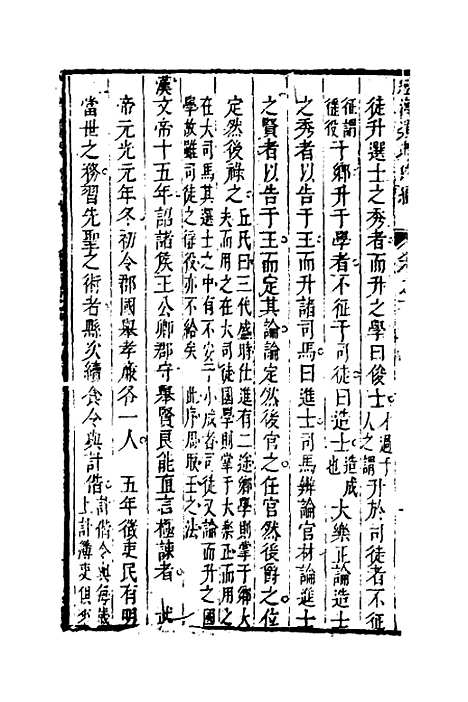 徒升選士之秀者而升之學曰俊士才過千人之謂升於司徒者不征
征謂徭役于鄉升于學者不征于司徒曰造士造成也大樂正論造士
之秀者以告于王而升諸司馬曰進士司馬辨論官材論進士
之賢者以告于王而定其論論定然後官之任官然後爵之位
定然後祿之丘氏曰三代盛時仕進有二途鄉學則掌于鄉大
夫而用之在大司徒國學則掌于大樂正而用之
在大司馬其選士之中有不安于小成者司徒又論而升之國
學故雖司徒之徭役亦不給矣 此序周取士之法
漢文帝十五年詔諸侯王公卿郡守舉賢良能直言極諫者 武
帝元光元年冬初令郡國舉孝廉各一人 五年徵吏民有明
當世之務習先聖之術者縣次續食令與計偕計偕令與每歲
上計簿吏俱